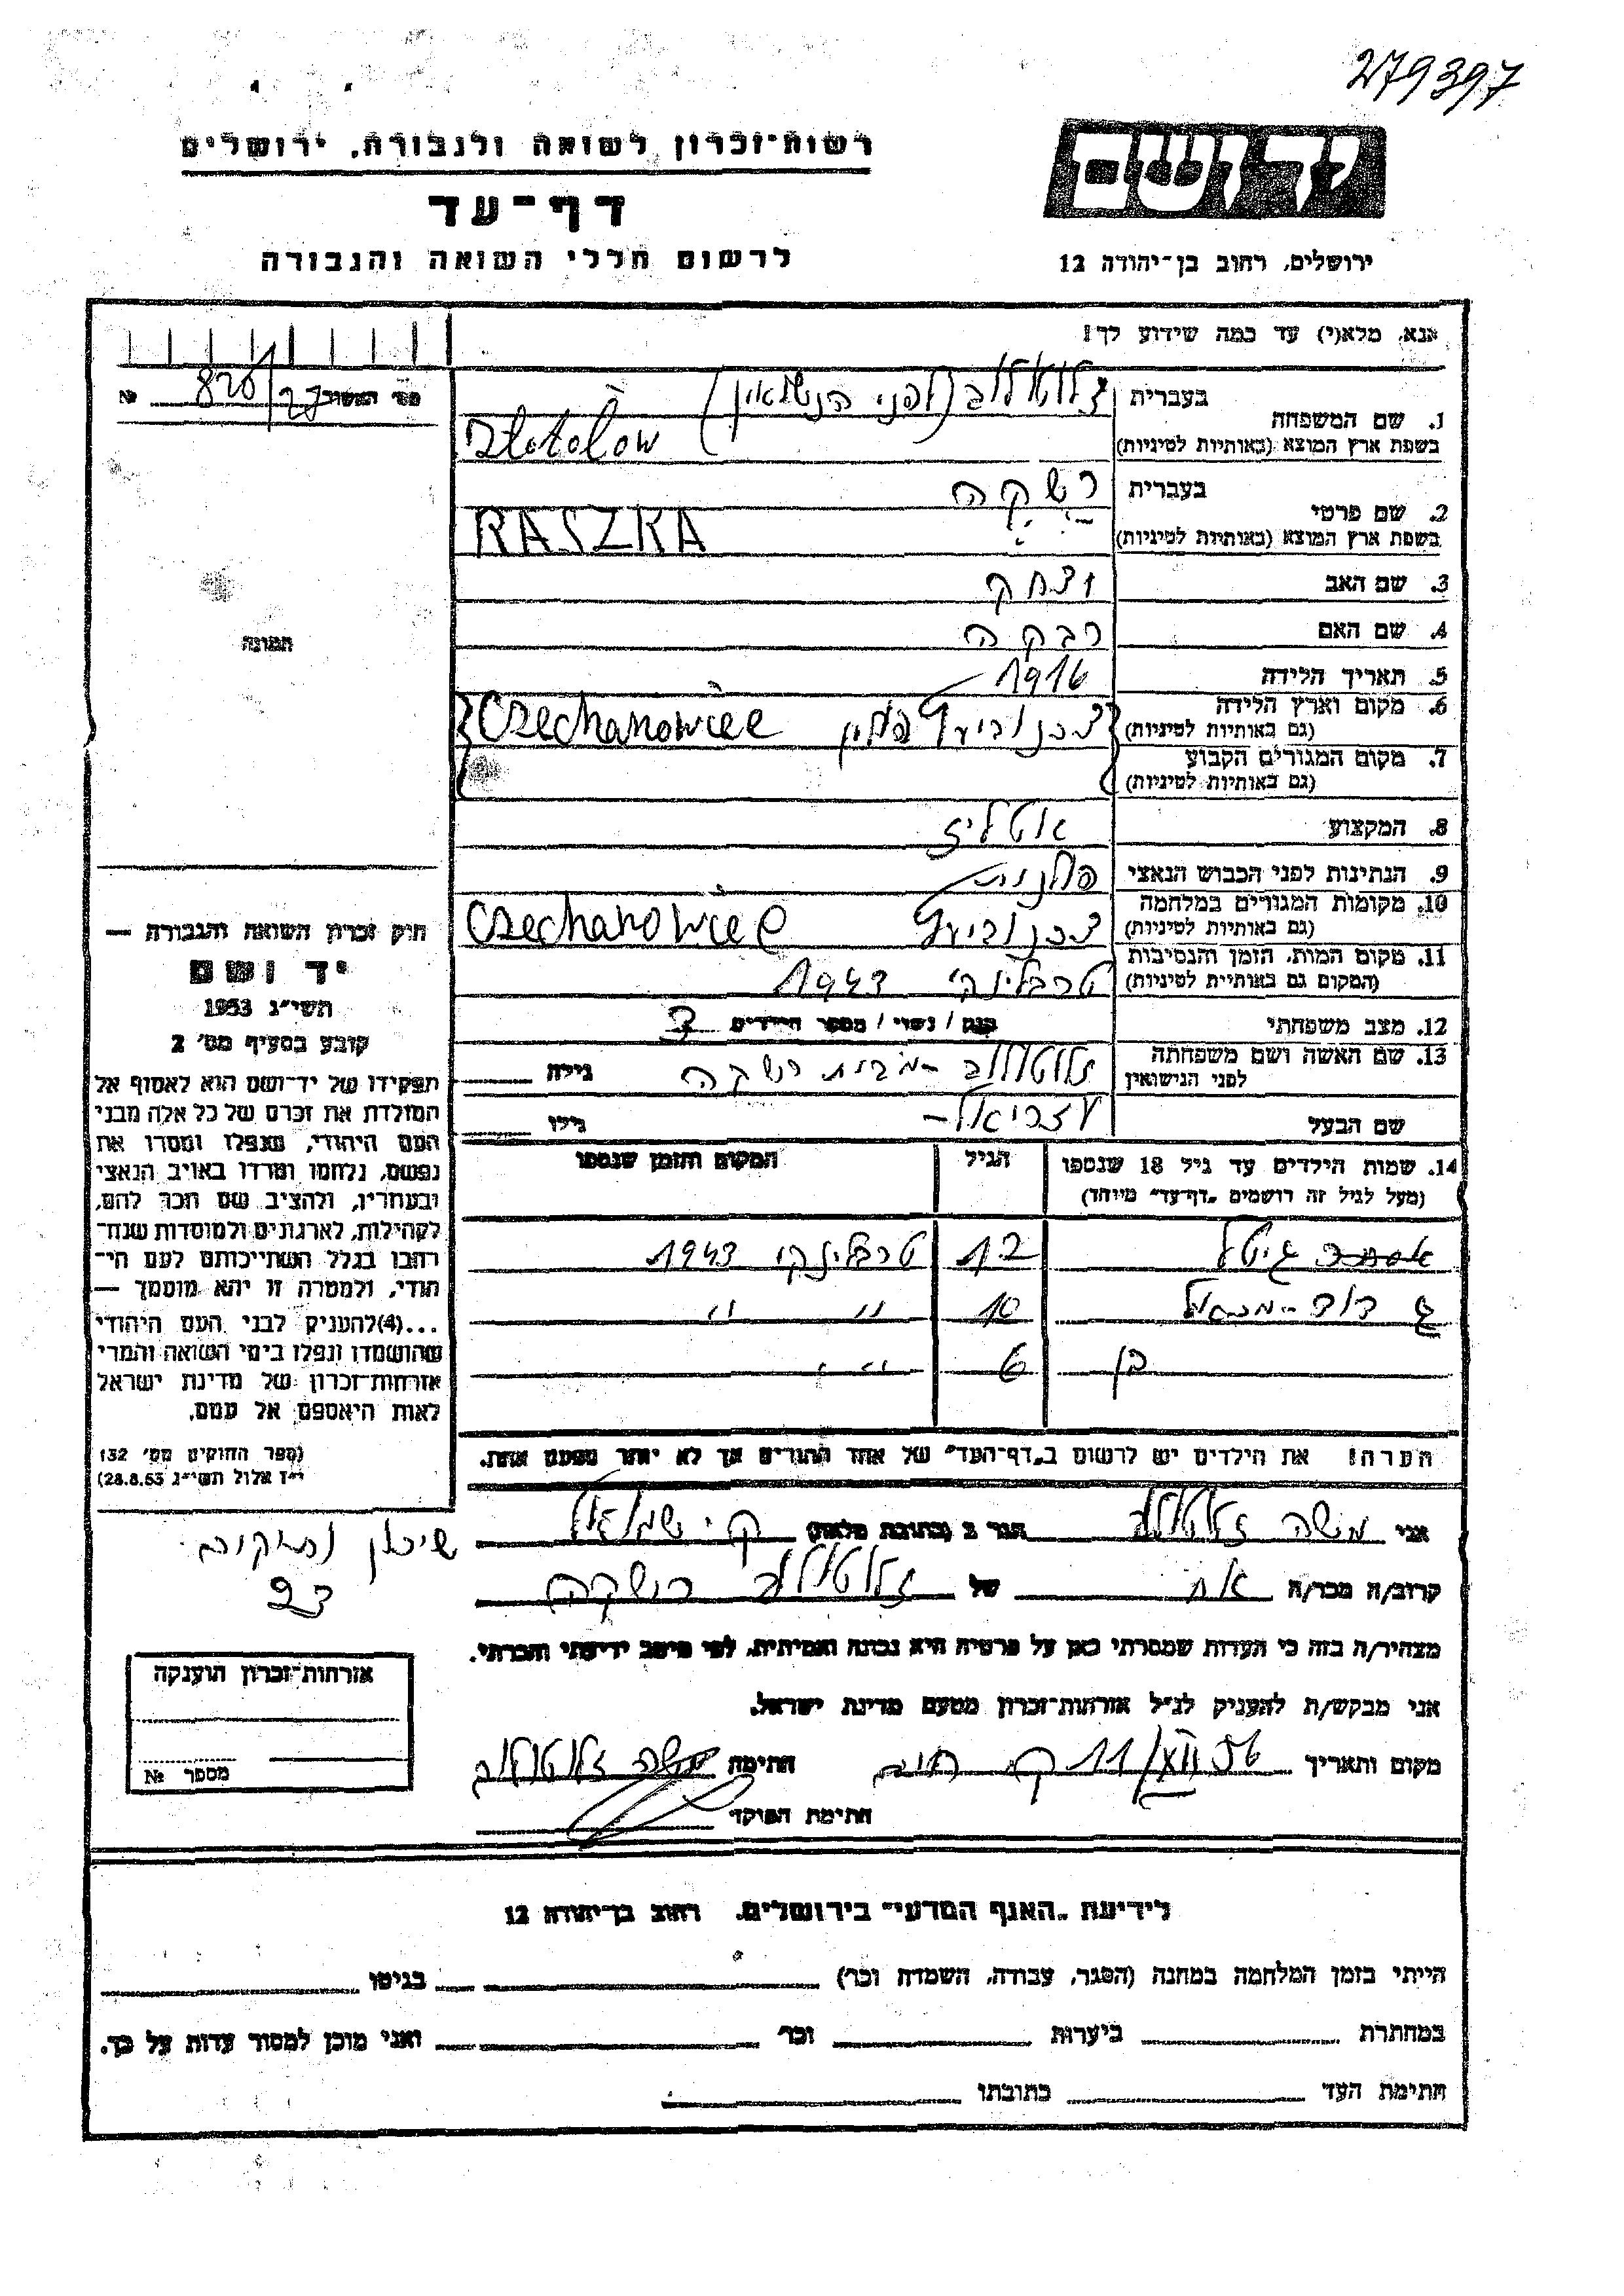 279397
רשות־זכרון לשואה ולגבורה, ירושלים
יד ושם
דף־עד
לרשום חללי השואה והגבורה
ירושלים, רחוב בן־יהודה 12
אנא, מלא(י) עד כמה שידוע לך!
מס׳ האשור 820/27 №
1. שם המשפחה בעברית זלוטולוב (לפני הנשואין)
בשפת ארץ המוצא (באותיות לטיניות) Złotolów
2. שם פרטי בעברית רשקה
בשפת ארץ המוצא (באותיות לטיניות) RASZKA
3. שם האב יצחק
4. שם האם רבקה
5. תאריך הלידה 1916
6. מקום וארץ הלידה (גם באותיות לטיניות) פולין Czechanowiec
7. מקום המגורים הקבוע (גם באותיות לטיניות)
8. המקצוע אטליז
9. הנתינות לפני הכבוש הנאצי פולנית
10. מקומות המגורים במלחמה (גם באותיות לטיניות) Czechanowiec
11. מקום המות, הזמן והנסיבות (המקום גם באותיית לטיניות) טרבלינקי 1943
12. מצב משפחתי רווק / נשוי / מספר הילדים 3
13. שם האשה ושם משפחתה לפני הנישואין זלוטולוב מבית רשקה גילה
שם הבעל עזריאל גילו
14. שמות הילדים עד גיל 18 שנספו (מעל לגיל זה רושמים „דף־עד” מיוחד) הגיל המקום והזמן שנספו
גיטל 12 טרבלינקי 1943
דוד־מכאל 10 " "
בן 6 " "
הערה! את הילדים יש לרשום ב„דף־העד” של אחד ההורים אך לא יותר מפעם אחת.
תמונה
חוק זכרון השואה והגבורה —
יד ושם
תשי״ג 1953
קובע בסעיף מס׳ 2
תפקידו של יד־ושם הוא לאסוף אל
המולדת את זכרם של כל אלה מבני
העם היהודי, שנפלו ומסרו את
נפשם, נלחמו ומרדו באויב הנאצי
ובעוזריו, ולהציב שם וזכר להם,
לקהילות, לארגונים ולמוסדות שנח־
רבו בגלל השתייכותם לעם הי־
הודי, ולמטרה זו יהא מוסמך —
...(4)להעניק לבני העם היהודי
שהושמדו ונפלו בימי השואה והמרי
אזרחות־זכרון של מדינת ישראל
לאות היאספם אל עמם.
(ספר החוקים מס׳ 132
י״ז אלול תשי״ג 28.8.53)
אני משה זלוטולוב הגר ב (כתובת מלאה) ק׳ שמואל
שיכון ותיקים
23
קרוב/ה מכר/ה אח של זלוטולוב רשקה
מצהיר/ה בזה כי העדות שמסרתי כאן על פרטיה היא נכונה ואמיתית, לפי מיטב ידיעתי והכרתי.
אני מבקש/ת להעניק לנ״ל אזרחות־זכרון מטעם מדינת ישראל.
מקום ותאריך 11/XII 56 ק. חיים חתימה משה זלוטולוב
חתימת הפוקד
אזרחות־זכרון הוענקה
מספר №
לידיעת „האגף המדעי” בירושלים, רחוב בן־יהודה 12
הייתי בזמן המלחמה במחנה (הסגר, עבודה, השמדה וכו׳) בגיטו
במחתרת ביערות וכו׳ ואני מוכן למסור עדות על כך.
חתימת העד כתובתו